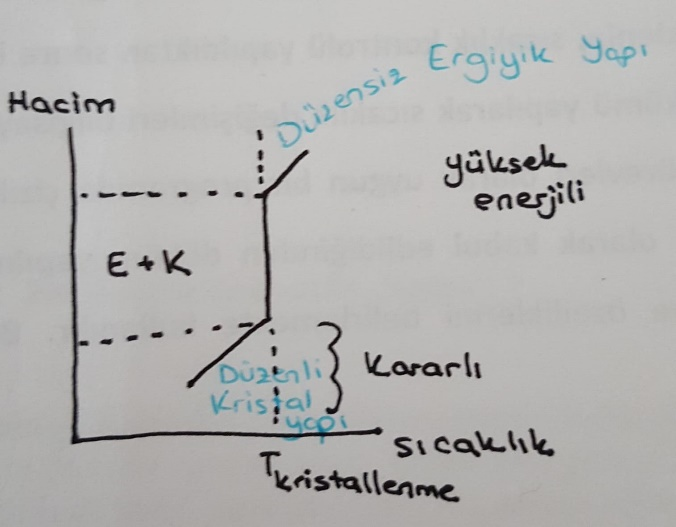 Düzensiz Ergiyik Yapı
Hacim
yüksek
enerjili
E + K
Düzenli
Kristal
yapı
Kararlı
sıcaklık
Tkristallenme